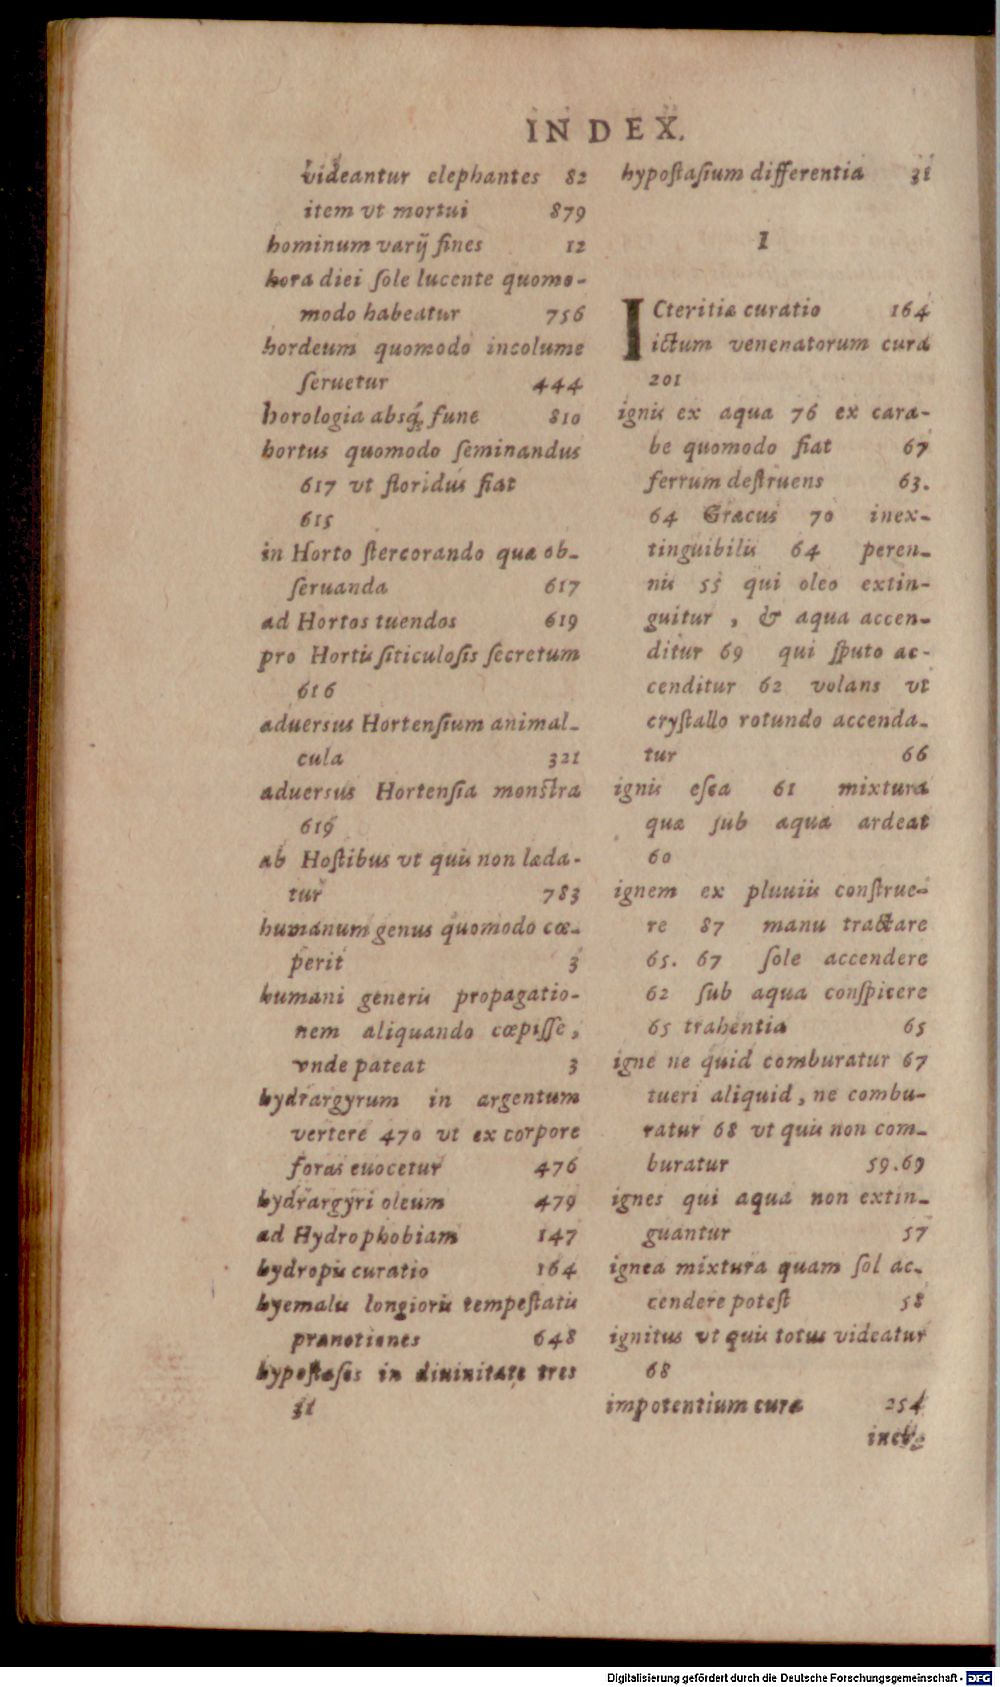 INDEX.
videantur elephantes 82
item vt mortui 879
hominum varij fines 12
hora diei ſole lucente quomo-
modo habeatur 756
hordeum quomodo incolume
ſeruetur 444
horologia absq́; fune 810
hortus quomodo ſeminandus
617 vt floridus fiat
615
in Horto ſtercorando quæ ob-
ſeruanda 617
ad Hortos tuendos 619
pro Hortis ſiticuloſis ſecretum
616
aduersus Hortenſium animal-
cula 321
aduersus Hortenſia monſtra
619
ab Hoſtibus vt quis non læda-
tur 783
humanum genus quomodo cœ-
perit 3
humani generis propagatio-
nem aliquando cœpiſſe,
vnde pateat 3
hydrargyrum in argentum
vertere 470 vt ex corpore
foras euocetur 476
hydrargyri oleum 479
ad Hydrophobiam 147
hydropis curatio 164
hyemalis longioris tempeſtatis
prænotiones 648
hypoſtaſes in diuinitate tres
31
hypoſtaſium differentia 31
I
ICteritiæ curatio 164
ictum venenatorum cura
201
ignis ex aqua 76 ex cara-
be quomodo fiat 67
ferrum deſtruens 63.
64 Græcus 70 inex-
tinguibilis 64 peren-
nis 55 qui oleo extin-
guitur, & aqua accen-
ditur 69 qui ſputo ac-
cenditur 62 volans vt
cryſtallo rotundo accenda-
tur 66
ignis eſca 61 mixtura
quæ ſub aqua ardeat
60
ignem ex pluuiis conſtrue-
re 87 manu tractare
65. 67 ſole accendere
62 ſub aqua conſpicere
65 trahentia 65
igne ne quid comburatur 67
tueri aliquid, ne combu-
ratur 68 vt quis non com-
buratur 59.69
ignes qui aqua non extin-
guantur 57
ignea mixtura quam ſol ac-
cendere poteſt 58
ignitus vt quis totus videatur
68
impotentium cura 254